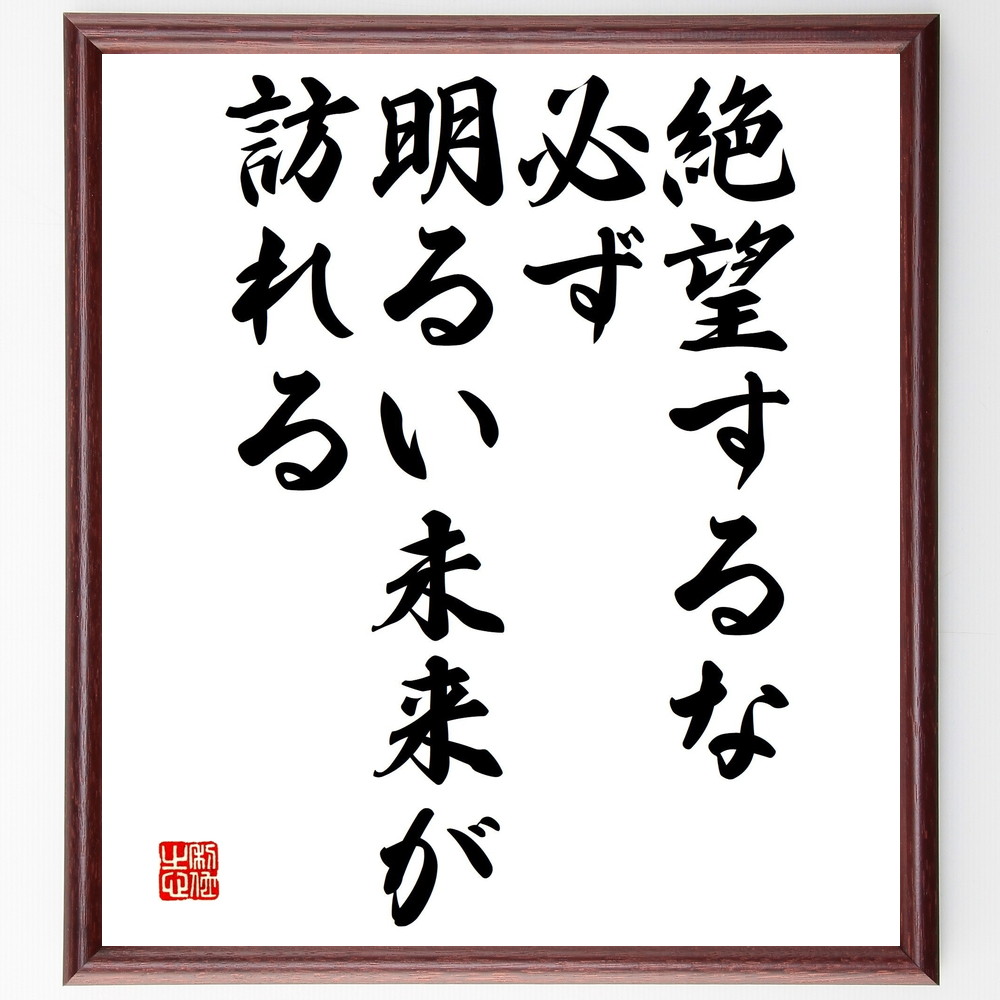 絶望するな
必ず
明るい未来が
訪れる